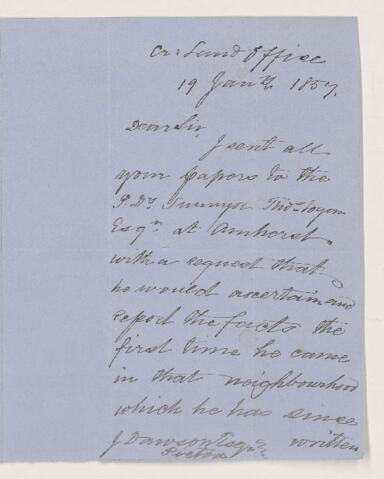 Cr: Land Office
19 Jany 1857.
Dear Sir,
I sent all
your papers to the
P. Dy Thos
Esqr at Amherst
with a request that
he would ascertain and
report the facts the
first time he came
in that neighbourhood
which he has since
written
J Dawson Esqr
Pictou